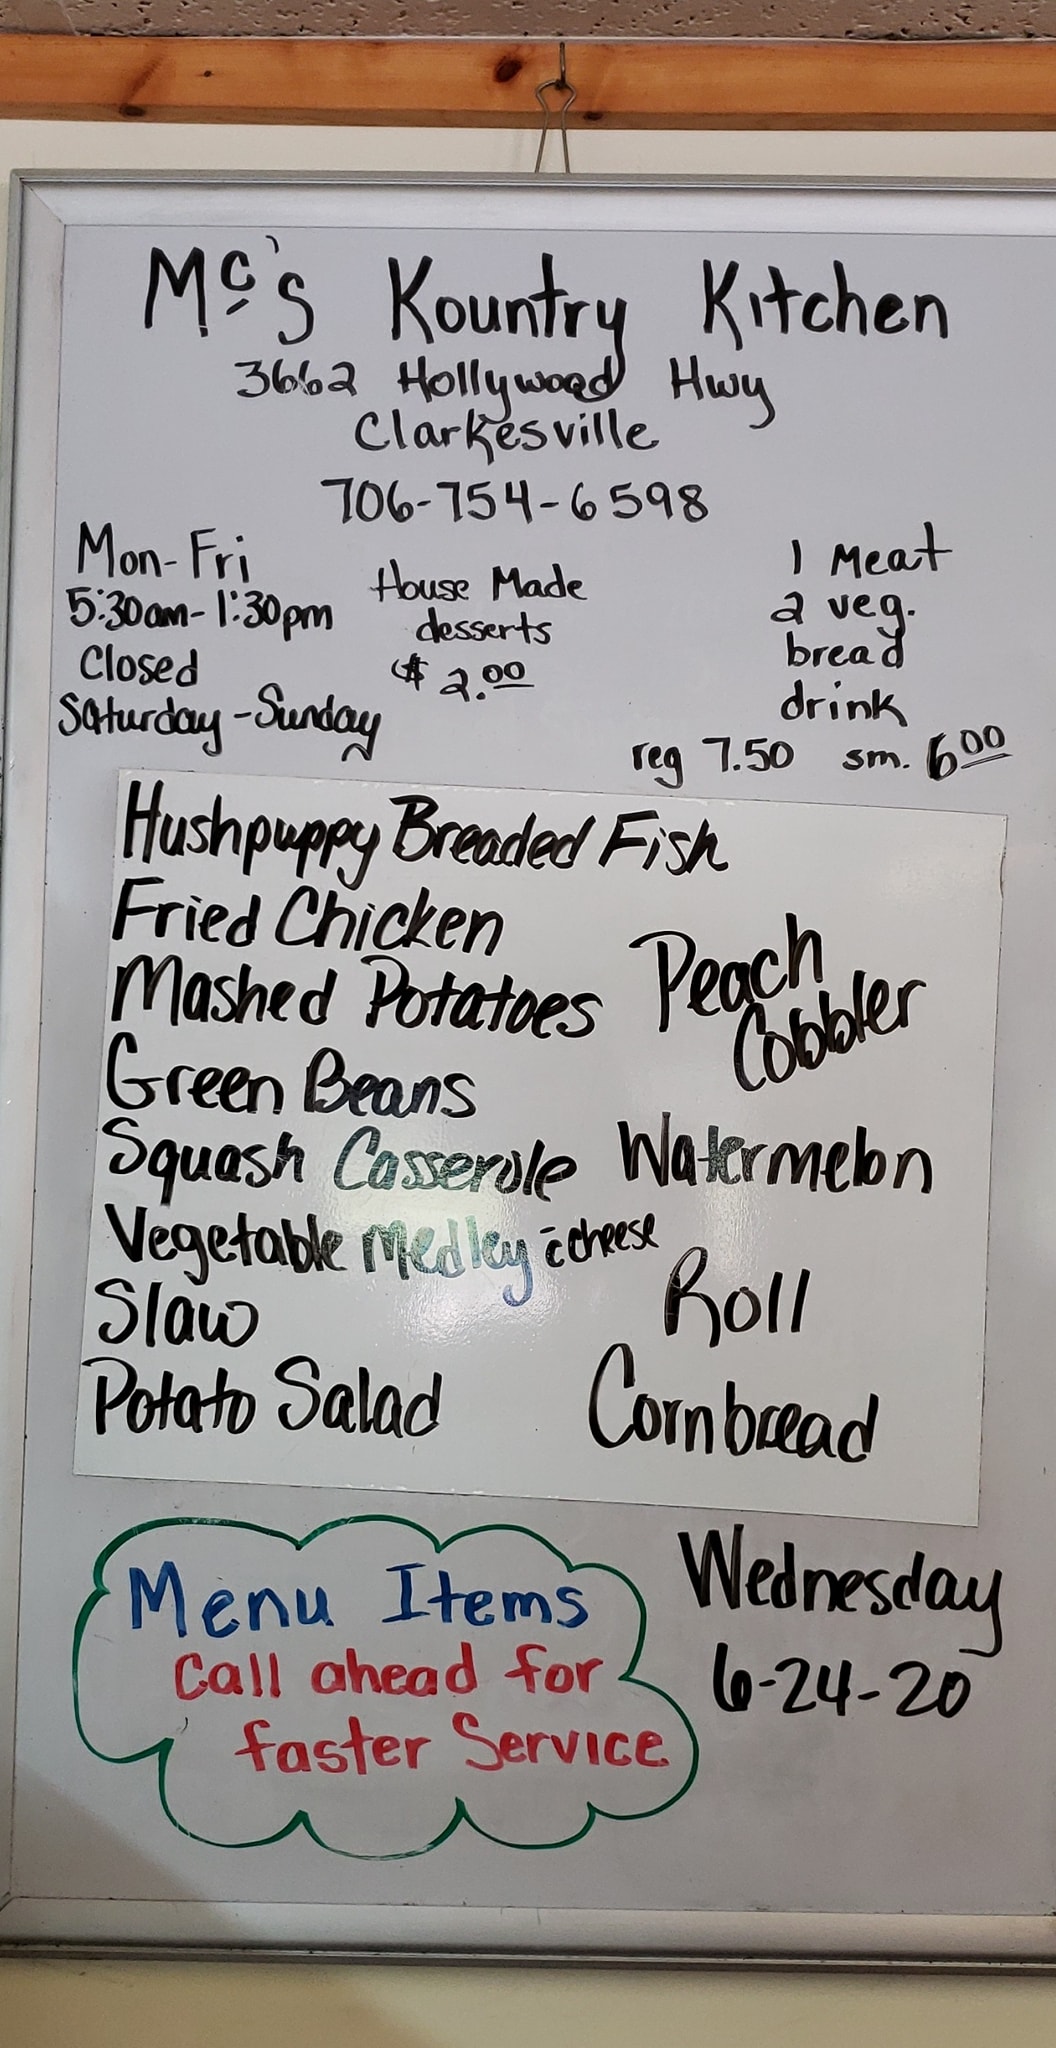 Mc's Kountry Kitchen
3662 Hollywood Hwy
Clarkesville
706-754-6598
Mon-Fri
5:30am-1:30pm
Closed
Saturday-Sunday
House Made
desserts
$2.00
1 Meat
2 veg.
bread
drink
reg 7.50 sm. 6.00
Hushpuppy Breaded Fish
Fried Chicken
Mashed Potatoes
Green Beans
Squash Casserole
Vegetable Medley c̄ cheese
Slaw
Potato Salad
Peach
Cobbler
Watermelon
Roll
Cornbread
Menu Items
Call ahead for
faster Service
Wednesday
6-24-20